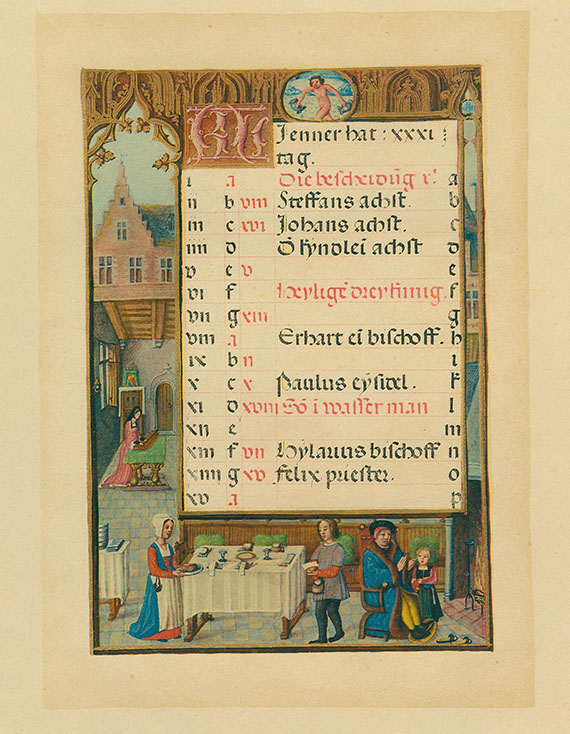 KL Jenner hat : xxxi :
tag.
i a Die bescheidūg x' a
ii b viii Steffans achst. b
iii c xvi Johans achst. c
iiii d O kyndlei achst d
v e v e
vi f Heylige drey kinig. f
vii g xiii g
viii a Erhart ei bischoff. h
ix b ii i
x c x Paulus eysidel. k
xi d xviii Sō i wasser man l
xii e m
xiii f vii Hylarius bischoff n
xiiii g xv Felix priester. o
xv a p